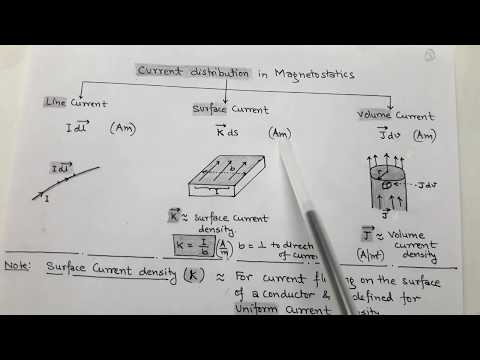 Current distribution in Magnetostatics
Line Current
Surface Current
Volume Current
I dl (Am)
K ds (Am)
J dv (Am)
I dl
I
b
J dv
J
K ≈ surface current density.
K = I/b (A/m) b = ⊥ to direct
of curre
J ≈ Volume
current
density
(A/m²)
Note: Surface Current density (K) ≈ For current fl ng on the surface
of a conductor & defined for
uniform Current